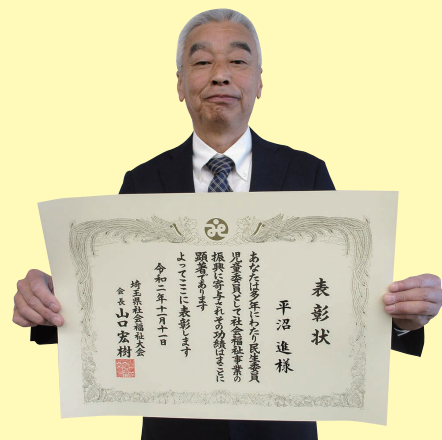 表彰状
平沼進様
あなたは多年にわたり民生委員
児童委員として社会福祉事業の
振興に寄与されその功績はまことに
顕著であります
よってここに表彰します
令和二年十一月十一日
埼玉県社会福祉大会
会長山口宏樹